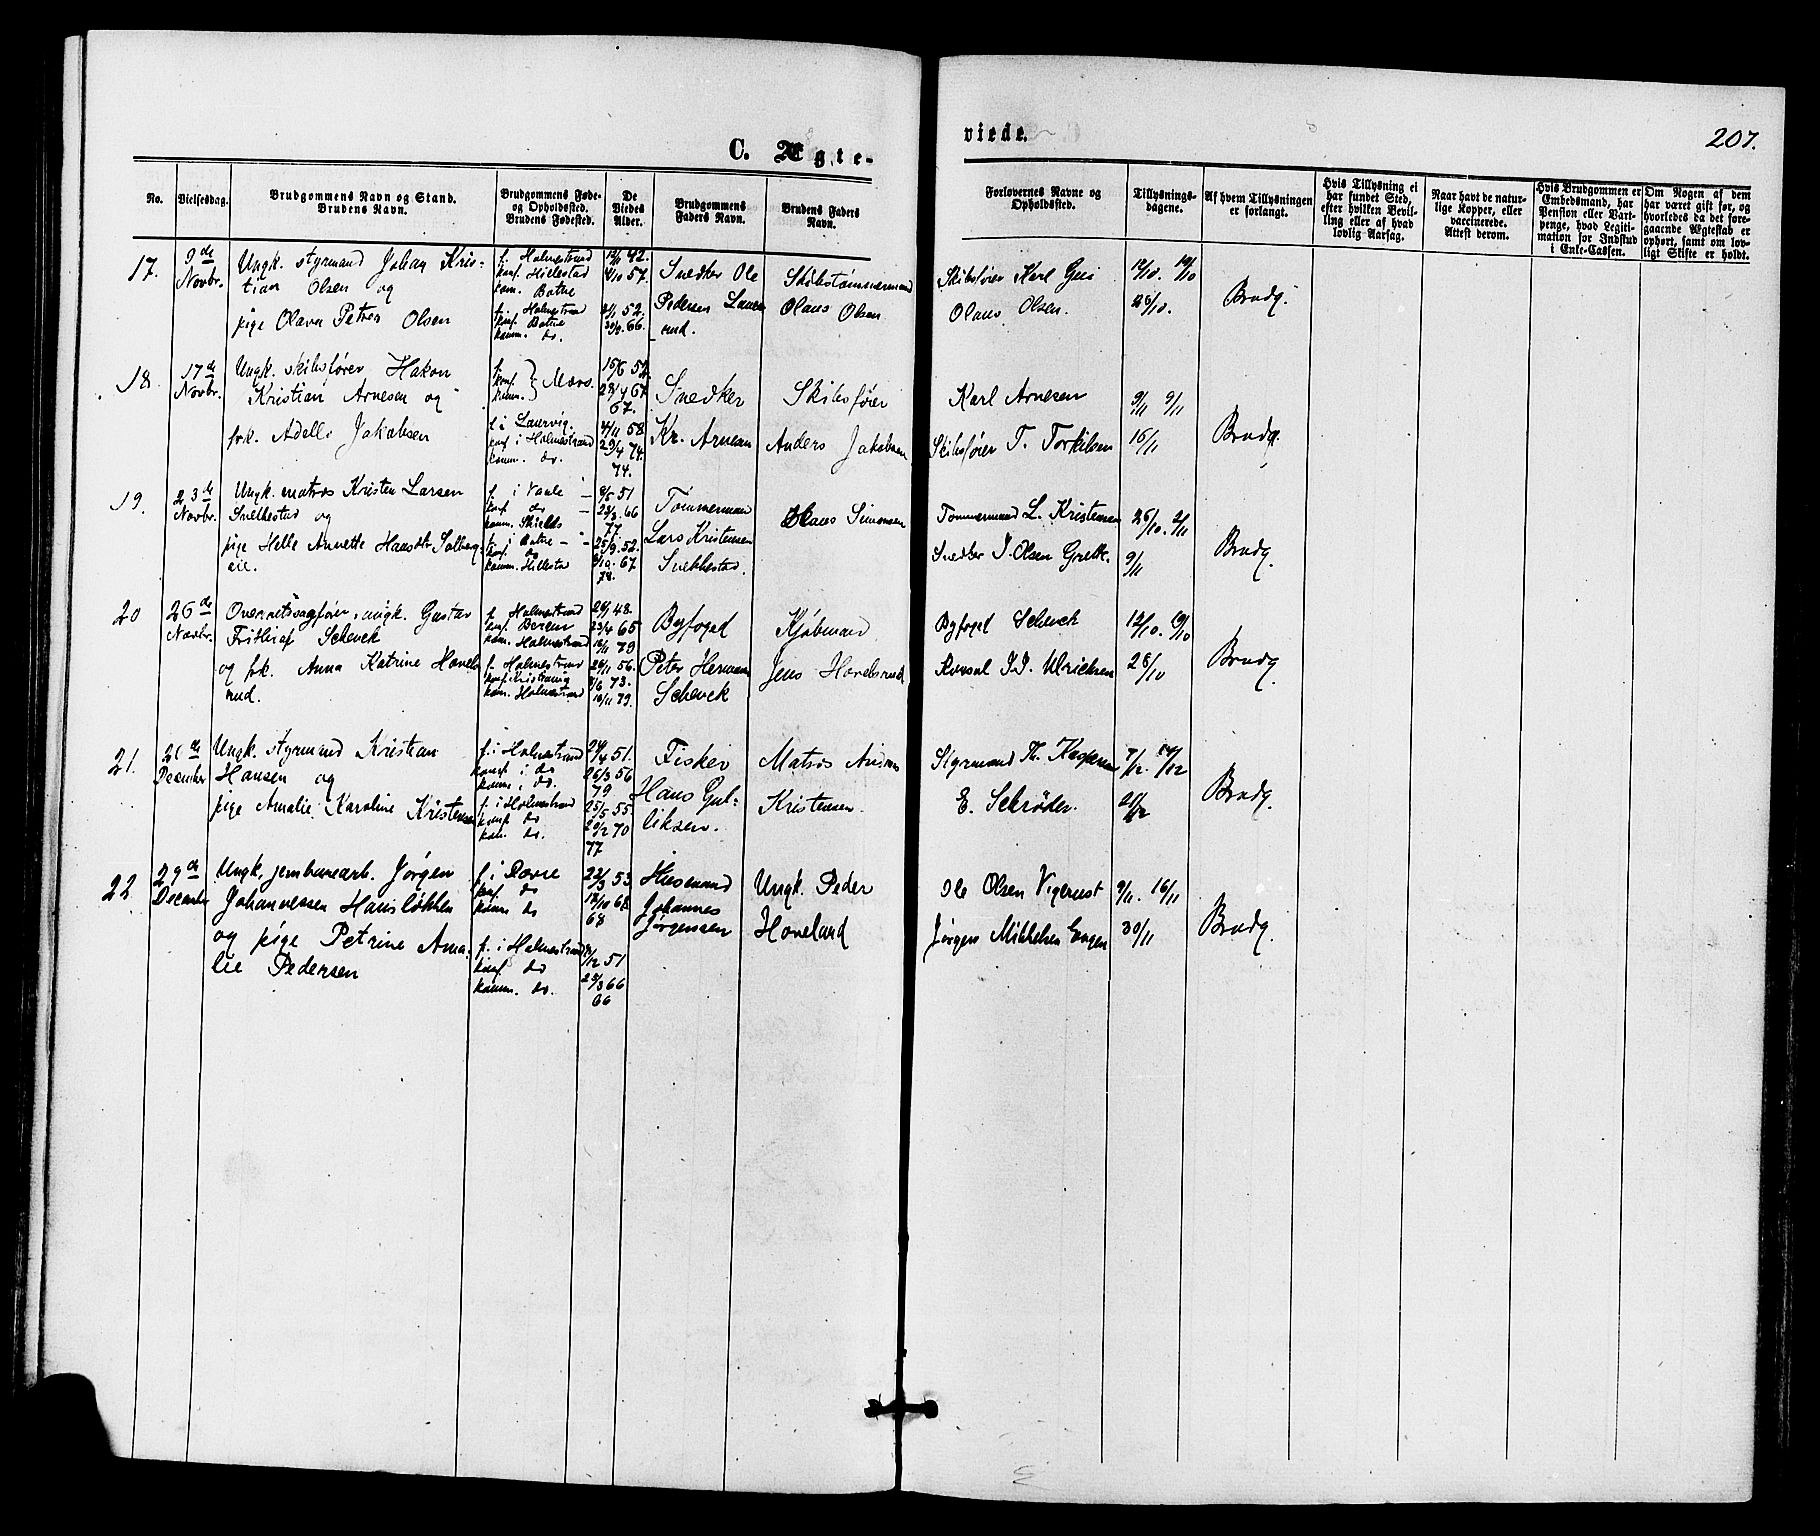 C. Ægte-
viede.
207.
No.
Vielsesdag.
Brudgommens Navn og Stand.
Brudens Navn.
Brudgommens Føde-
og Opholdssted.
Brudens Fødested.
De
Viedes
Alder.
Brudgommens
Faders Navn.
Brudens Faders
Navn.
Forlovernes Navne og
Opholdssted.
Tillysnings-
dagene.
Af hvem Tillysningen
er forlangt.
Hvis Tillysning ei
har fundet Sted,
efter hvilken Bevil-
ling eller af hvad
lovlig Aarsag.
Naar havt de natur-
lige Kopper, eller
vaccinerede.
Attest derom.
Hvis Brudgommen er
Embedsmand, har
Pension eller Vart-
penge, hvad Legiti-
mation for Indskud
i Enke-Cassen.
Om Nogen af dem
har været gift før, og
hvorledes da det fore-
gaaende Ægteskab er
ophørt, samt om lov-
ligt Skifte er holdt.
17.
9de
Novbr.
Ungk. styrmand Johan Kris-
tian Olsen og
pige Olava Petrea Olsen
f. Holmestrand
konf. Hillestad
kom. Botne
f. Holmestrand
konf. Botne
komm. do.
42.
4/10 57.
52.
66.
Snedker Ole
Pedersen
rud.
Skibstømmermand
Olaus Olsen
Skibsfører Karl
Olaus Olsen.
12/10. 19/10
26/10.
Brudg.
18.
17de
Novbr.
Ungk. skibsfører Hakon
Kristian Arnesen og
frk. Adelle Jakobsen
f.
konf.
komm.
f. i Laurvig.
konf. i Holmestrand
komm. do.
15/6 52.
23/4 67
67.
4/11 58
29/4 74.
74.
Snedker
Kr. Arnesen
Skibsfører
Anders Jakobsen
Karl Arnesen
Skibsfører T. Torkilsen
2/11 9/11
16/11
Brudg.
19.
23de
Novbr.
Ungk. matros Kristen Larsen
Snekkestad og
pige Helle Annette Hansdtr. Solberg-
eie.
f. i Vaale
konf. do
komm.
f. i Botne
konf. do
komm. Hillestad
51
66
77.
25/9. 52.
67
78.
Tømmermand
Lars Kristensen
Snekkestad.
Hans Simonsen
Tømmermand L. Kristensen
Snedker J. Olsen
26/10. 2/11
9/11
Brudg.
20
26de
Novbr.
Overretssagfører, ungk. Gustav
Frithiof Schenck
og frk. Anna Katrine Hovels-
rud.
f. Holmestrand
konf. Bergen
kom. Holmestrand
f. Holmestrand
konf. Kristiania
kom. Holmestrand
48.
23/4 65
79
56.
73.
79.
Byfoged
Peter Herman
Schenck
Kjøbmand
Jens Hovelsrud
Byfoged Schenck
Konsul J. J. Ulrichsen
12/10. 19/10
26/10
Brudg
21.
December
Ungk. styrmand Kristian
Hansen og
pige Amalie Karoline Kristensen
f. i Holmestrand
konf. i do
komm. i do.
f. i Holmestrand
konf. do
kom. do.
24/4 51.
79
25/5 55.
70
77
Fisker
Hans Gul-
liksen.
Matros
Kristensen
Styrmand
E. Schrøder.
7/12. 14/12
21/12
Brudg.
22
29de
December
Ungk. jernbanearb. Jørgen
Johannessen Hansløkken
og pige Petrine Ama-
lie Pedersen
f. i
konf. do
komm. do
f. i Holmestrand
konf. do
komm. do.
22/3 53
12/10 68
68
51
66
66
Husmand
Johannes
Jørgensen
Ungk. Peder
Hoveland
Ole Olsen
Jørgen Mikkelsen
9/11. 16/11
30/11
Brudg.